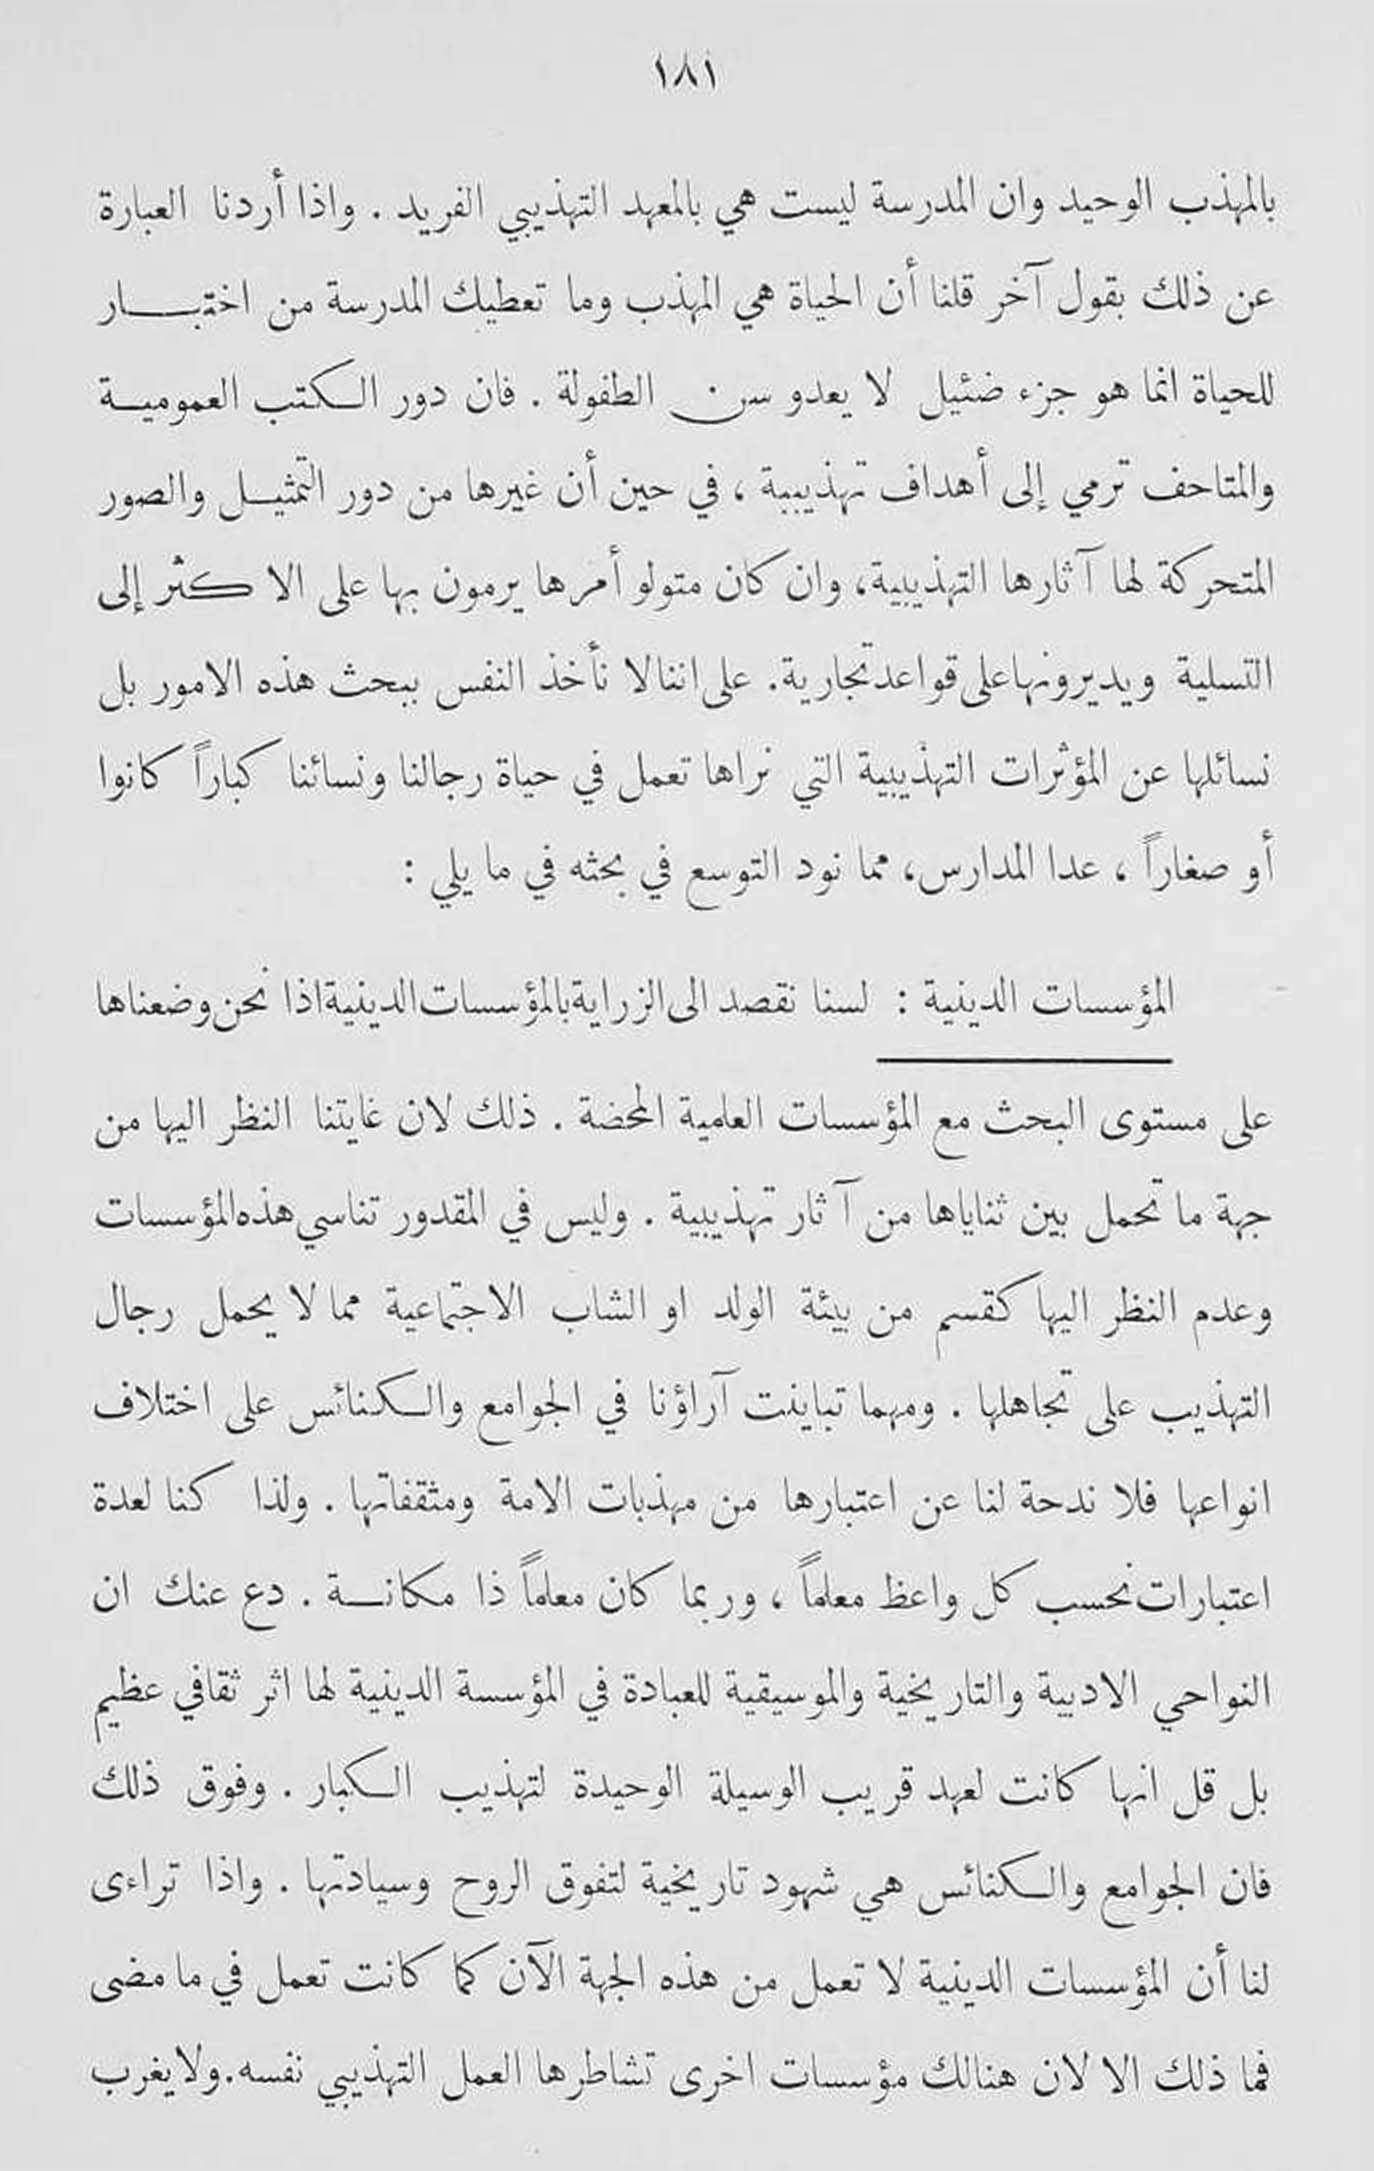 ١٨١
بالمهذب الوحيد وان المدرسة ليست هي بالمعهد التهذيبي الفريد . واذا أردنا العبارة
عن ذلك بقول آخر قلنا أن الحياة هي المهذب وما تعطيك المدرسة من اختبـــار
للحياة انما هو جزء ضئيل لا يعدو سن الطفولة . فان دور الكتب العموميـة
والمتاحف ترمي إلى أهداف تهذيبية ، في حين أن غيرها من دور التمثيـل والصور
المتحركة لها آثارها التهذيبية، وان كان متولو أمرها يرمون بها على الاكثر إلى
التسلية ويديرونها على قواعد تجارية. على اننا لا نأخذ النفس ببحث هذه الامور بل
نسائلها عن المؤثرات التهذيبية التي نراها تعمل في حياة رجالنا ونسائنا كباراً كانوا
أو صغاراً ، عدا المدارس، مما نود التوسع في بحثه في ما يلي :
المؤسسات الدينية : لسنا نقصد الى الزراية بالمؤسسات الدينية اذا نحن وضعناها
على مستوى البحث مع المؤسسات العامية المحضة . ذلك لان غايتنا النظر اليها من
جهة ما تحمل بين ثناياها من آثار تهذيبية . وليس في المقدور تناسي هذه المؤسسات
وعدم النظر اليها كقسم من بيئة الولد او الشاب الاجتماعية مما لا يحمل رجال
التهذيب على تجاهلها . ومهما تباينت آراؤنا في الجوامع والكنائس على اختلاف
انواعها فلا ندحة لنا عن اعتبارها من مهذبات الامة ومثقفاتها . ولذا كنا لعدة
اعتبارات نحسب كل واعظ معلماً ، وربما كان معلماً ذا مكانـة . دع عنك ان
النواحي الادبية والتاريخية والموسيقية للعبادة في المؤسسة الدينية لها اثر ثقافي عظيم
بل قل انها كانت لعهد قريب الوسيلة الوحيدة لتهذيب الكبار . وفوق ذلك
فان الجوامع والكنائس هي شهود تاريخية لتفوق الروح وسيادتها . واذا تراءى
لنا أن المؤسسات الدينية لا تعمل من هذه الجهة الآن كما كانت تعمل في ما مضى
فما ذلك الا لان هنالك مؤسسات اخرى تشاطرها العمل التهذيبي نفسه. ولا يغرب